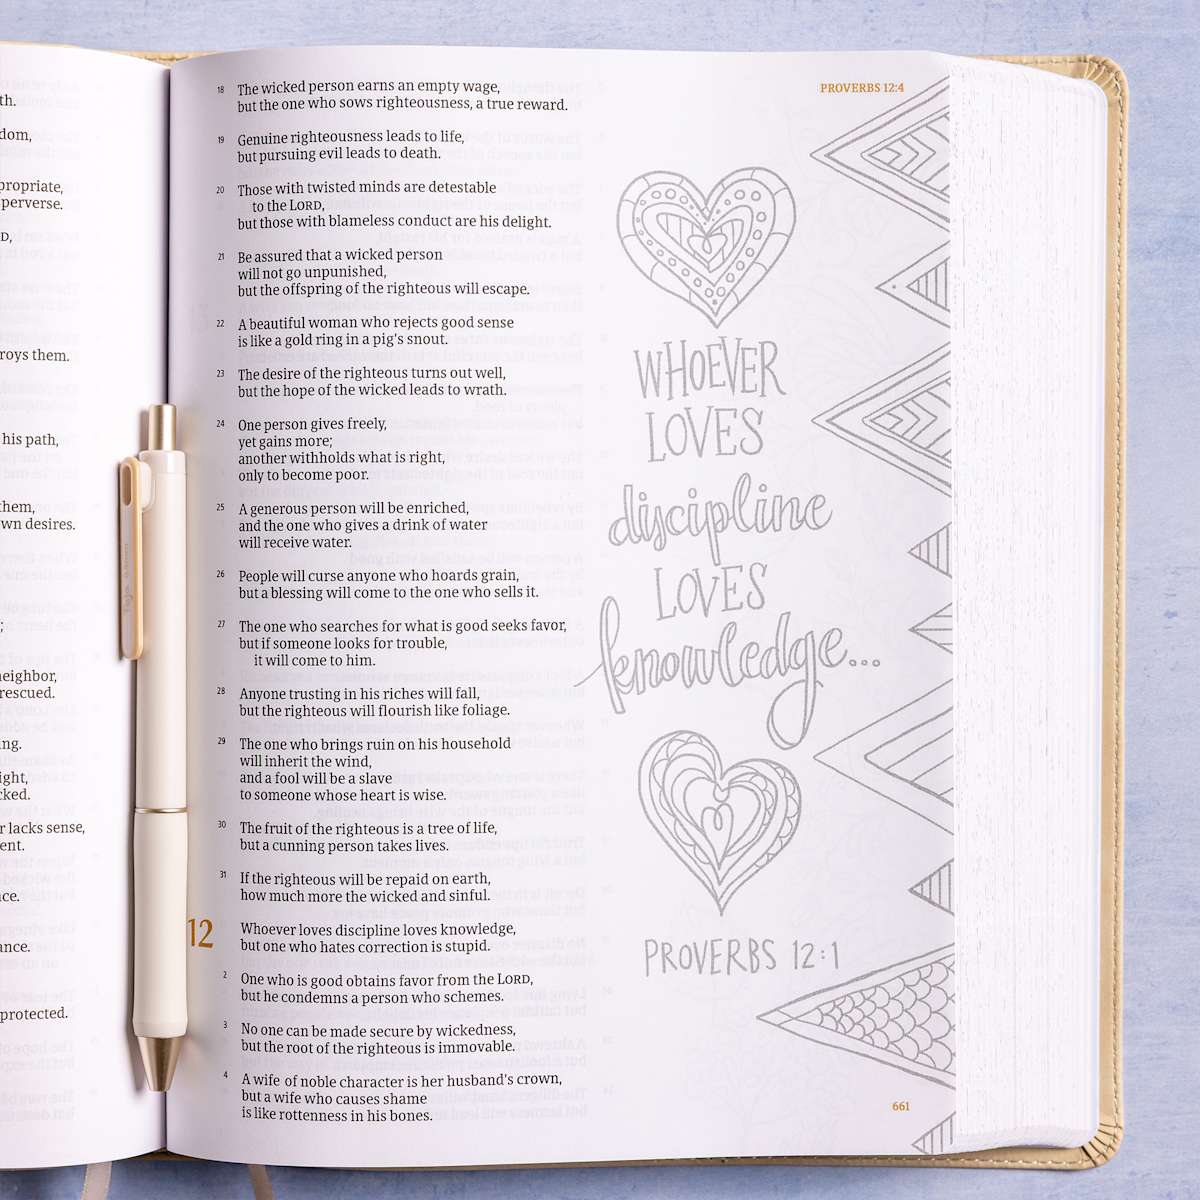 th.
dom,
propriate,
perverse.
D,
roys them.
his path,
them,
wn desires.
;
neighbor,
rescued.
ng.
ight,
cked.
r lacks sense,
ent.
ce.
ance.
protected.
PROVERBS 12:4
18 The wicked person earns an empty wage,
but the one who sows righteousness, a true reward.
19 Genuine righteousness leads to life,
but pursuing evil leads to death.
20 Those with twisted minds are detestable
to the LORD,
but those with blameless conduct are his delight.
21 Be assured that a wicked person
will not go unpunished,
but the offspring of the righteous will escape.
22 A beautiful woman who rejects good sense
is like a gold ring in a pig's snout.
23 The desire of the righteous turns out well,
but the hope of the wicked leads to wrath.
24 One person gives freely,
yet gains more;
another withholds what is right,
only to become poor.
25 A generous person will be enriched,
and the one who gives a drink of water
will receive water.
26 People will curse anyone who hoards grain,
but a blessing will come to the one who sells it.
27 The one who searches for what is good seeks favor,
but if someone looks for trouble,
it will come to him.
28 Anyone trusting in his riches will fall,
but the righteous will flourish like foliage.
29 The one who brings ruin on his household
will inherit the wind,
and a fool will be a slave
to someone whose heart is wise.
30 The fruit of the righteous is a tree of life,
but a cunning person takes lives.
31 If the righteous will be repaid on earth,
how much more the wicked and sinful.
12 Whoever loves discipline loves knowledge,
but one who hates correction is stupid.
2 One who is good obtains favor from the LORD,
but he condemns a person who schemes.
3 No one can be made secure by wickedness,
but the root of the righteous is immovable.
4 A wife of noble character is her husband's crown,
but a wife who causes shame
is like rottenness in his bones.
WHOEVER
LOVES
discipline
LOVES
knowledge...
PROVERBS 12:1
661